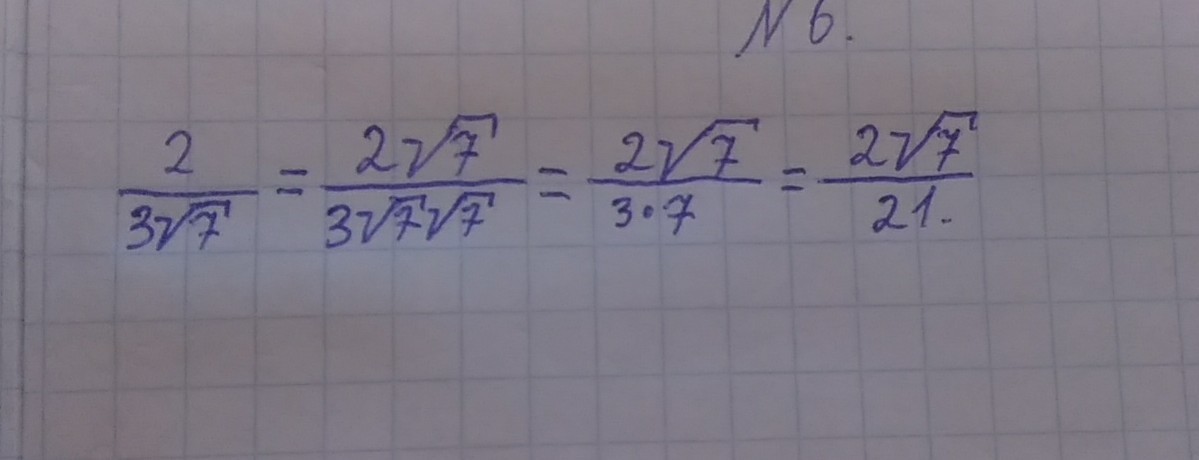 N 6.
2/(3√7) = 2√7/(3√7√7) = 2√7/(3·7) = 2√7/21.